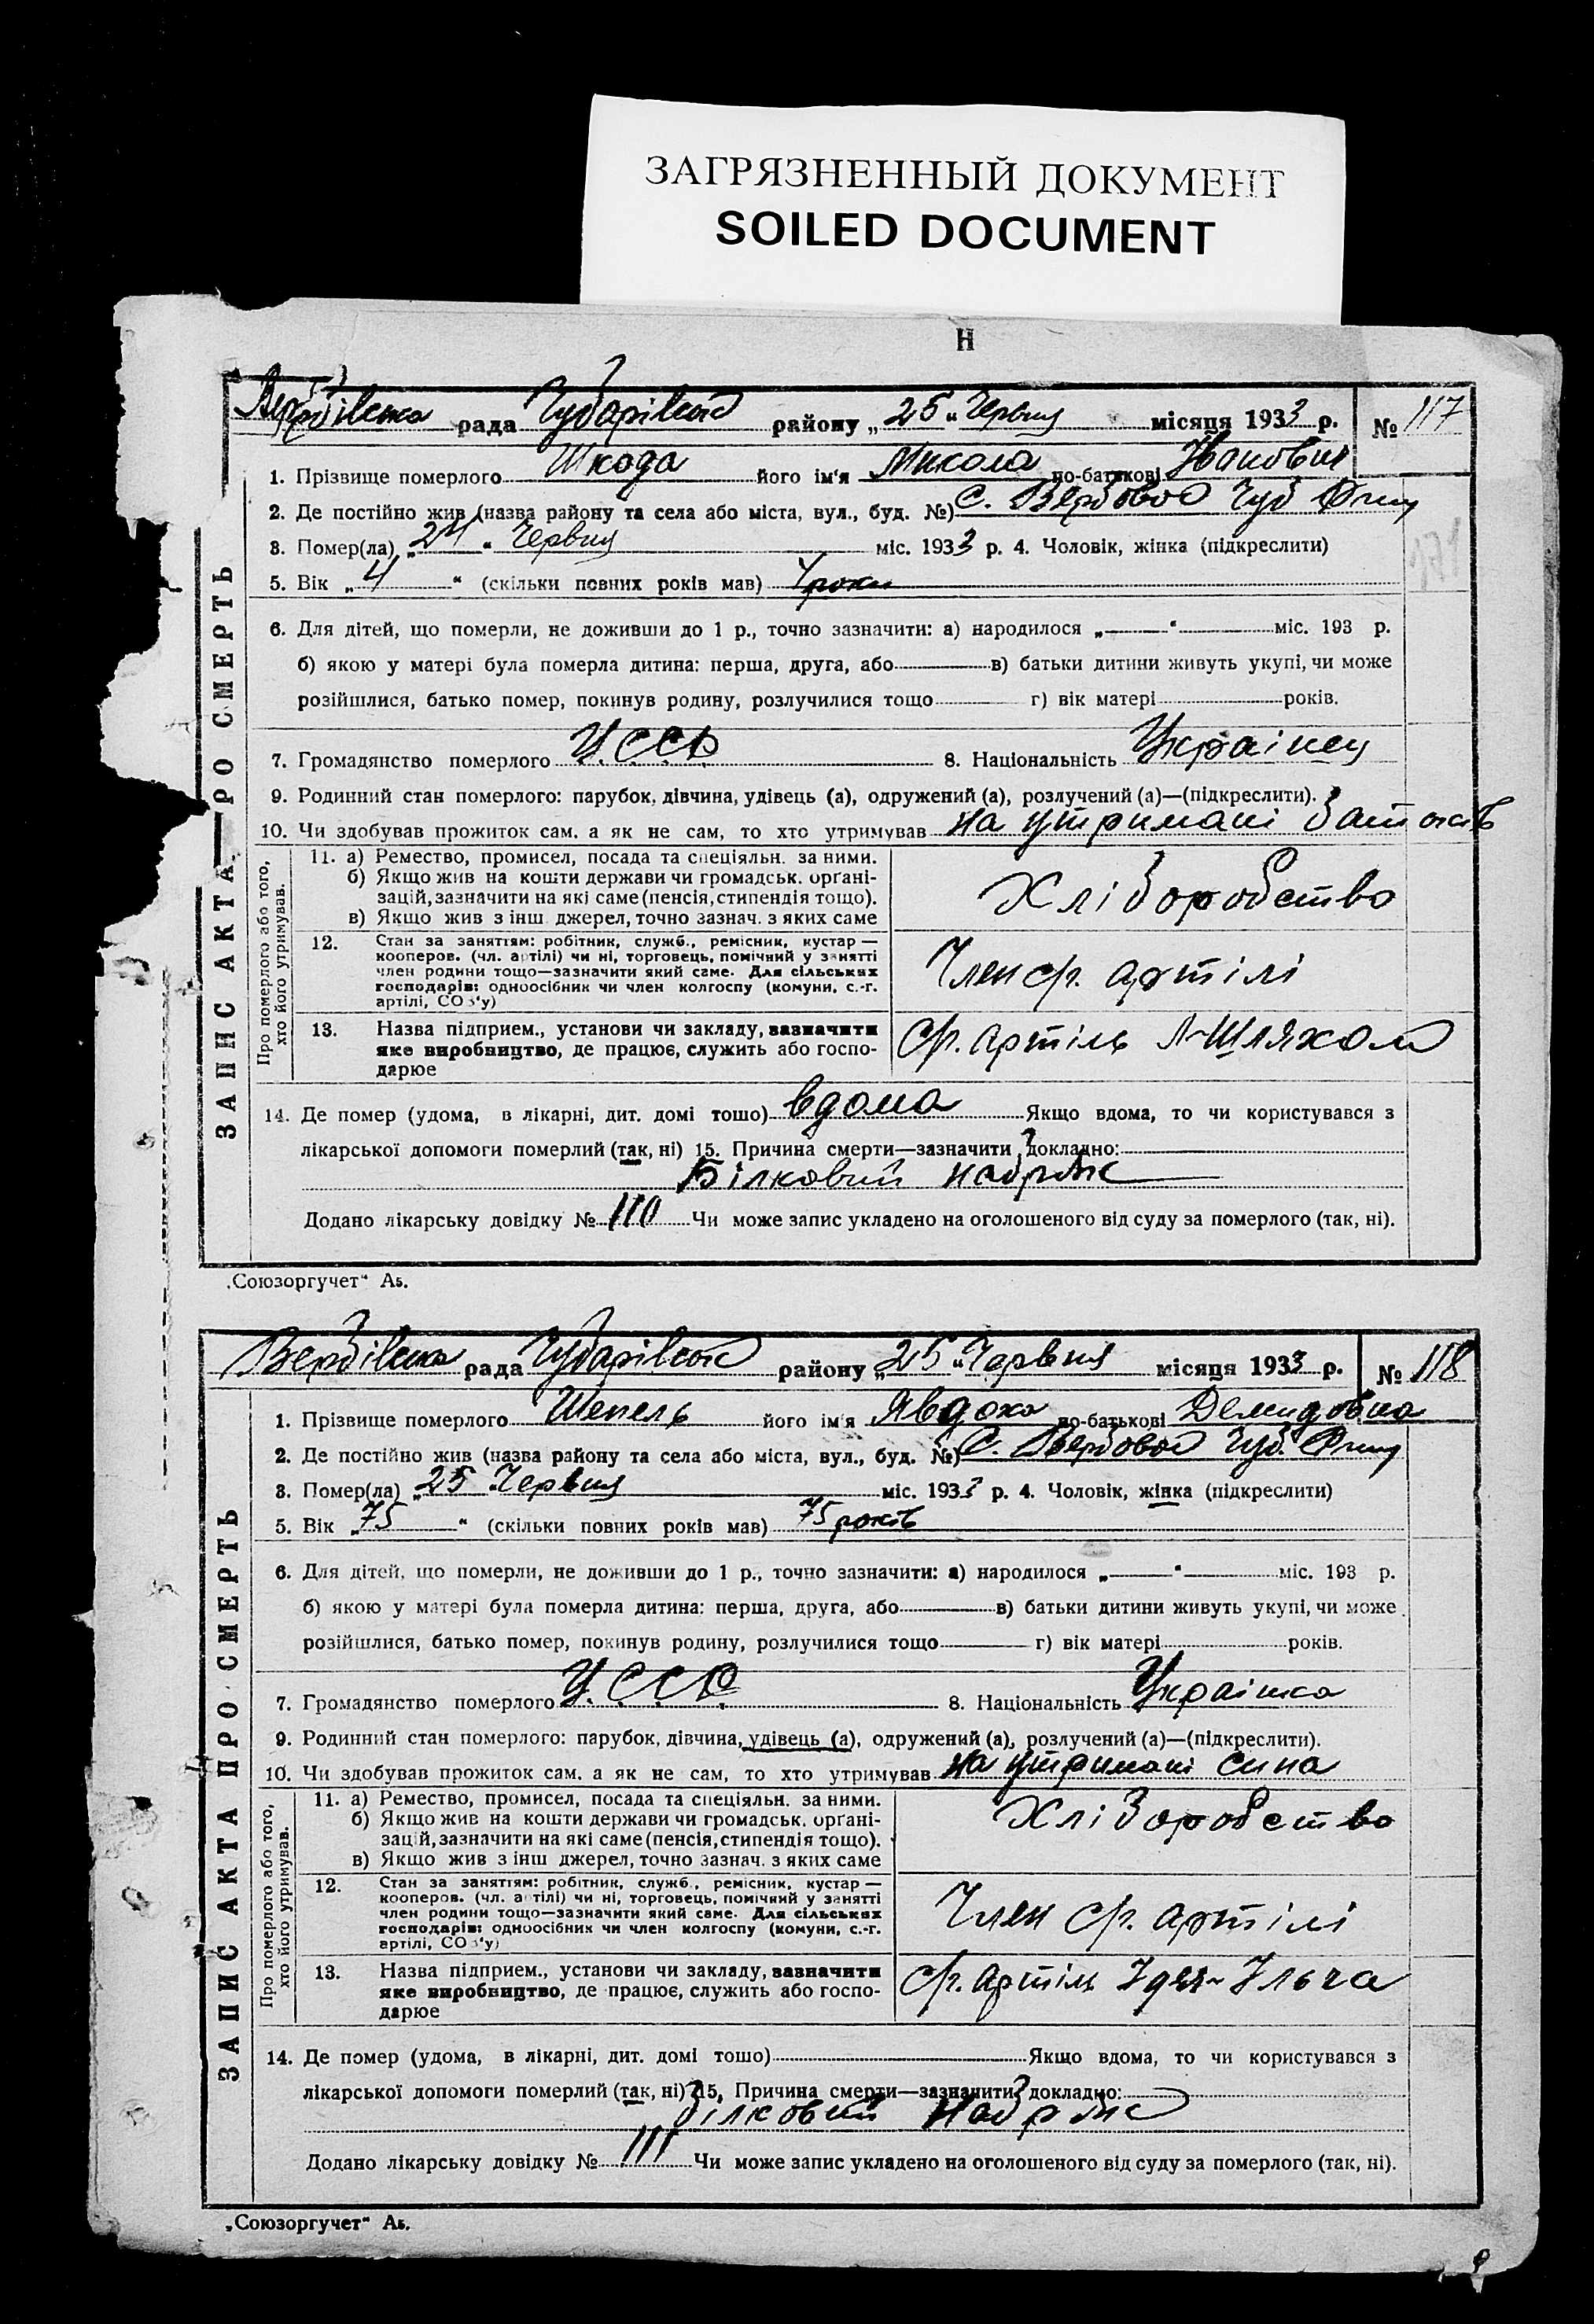 ЗАГРЯЗНЕННЫЙ ДОКУМЕНТ
SOILED DOCUMENT
Н
Вербівська рада Чубарівськ району „25“ Червня місяця 1933 р. № 117
ЗАПИС АКТА ПРО СМЕРТЬ
1. Прізвище померлого Шкода його ім'я Микола по-батькові Іванович
2. Де постійно жив (назва району та села або міста, вул., буд. №) с. Вербовое Чуб
3. Помер(ла) „24“ Червня міс. 1933 р. 4. Чоловік, жінка (підкреслити)
5. Вік „4“ (скільки повних років мав) 4 роки
6. Для дітей, що померли, не доживши до 1 р., точно зазначити: а) народилося „ “ міс. 193 р.
б) якою у матері була померла дитина: перша, друга, або в) батьки дитини живуть укупі, чи може
розійшлися, батько помер, покинув родину, розлучилися тощо г) вік матері років.
7. Громадянство померлого У.С.С.Р. 8. Національність Українец
9. Родинний стан померлого: парубок, дівчина, удівець (а), одружений (а), розлучений (а)—(підкреслити).
10. Чи здобував прожиток сам, а як не сам, то хто утримував на утримані батьків
Про померлого або того,
хто його утримував.
11. а) Ремество, промисел, посада та спеціяльн. за ними.
б) Якщо жив на кошти держави чи громадськ. органі-
зацій, зазначити на які саме (пенсія, стипендія тощо).
в) Якщо жив з інш. джерел, точно зазнач. з яких саме
Хліборобство
12. Стан за заняттям: робітник, служб., ремісник, кустар —
кооперов. (чл. артілі) чи ні, торговець, помічний у занятті
член родини тощо—зазначити який саме. Для сільських
господарів: одноосібник чи член колгоспу (комуни, с.-г.
артілі, СОЗ'у)
Член с/г. артілі
13. Назва підприєм., установи чи закладу, зазначити
яке виробництво, де працює, служить або госпо-
дарюе
с/г. артіль Л-Шляхом
14. Де помер (удома, в лікарні, дит. домі тощо) вдома Якщо вдома, то чи користувався з
лікарської допомоги померлий (так, ні) 15. Причина смерти—зазначити докладно:
Білковий набряк
Додано лікарську довідку № 110 Чи може запис укладено на оголошеного від суду за померлого (так, ні).
„Союзоргучет“ Аб.
Вербівська рада Чубарівськ району „25“ Червня місяця 1933 р. № 118
ЗАПИС АКТА ПРО СМЕРТЬ
1. Прізвище померлого Шепель його ім'я Явдоха по-батькові Демидовна
2. Де постійно жив (назва району та села або міста, вул., буд. №) с. Вербовое Чуб.
3. Помер(ла) „25 Червня міс. 1933 р. 4. Чоловік, жінка (підкреслити)
5. Вік „75“ (скільки повних років мав) 75 років
6. Для дітей, що померли, не доживши до 1 р., точно зазначити: а) народилося „ “ міс. 193 р.
б) якою у матері була померла дитина: перша, друга, або в) батьки дитини живуть укупі, чи може
розійшлися, батько помер, покинув родину, розлучилися тощо г) вік матері років.
7. Громадянство померлого У.С.С.Р. 8. Національність Українка
9. Родинний стан померлого: парубок, дівчина, удівець (а), одружений (а), розлучений (а)—(підкреслити).
10. Чи здобував прожиток сам, а як не сам, то хто утримував на утримані сина
Про померлого або того,
хто його утримував.
11. а) Ремество, промисел, посада та спеціяльн. за ними.
б) Якщо жив на кошти держави чи громадськ. органі-
зацій, зазначити на які саме (пенсія, стипендія тощо).
в) Якщо жив з інш джерел, точно зазнач. з яких саме
Хліборобство
12. Стан за заняттям: робітник, служб., ремісник, кустар —
кооперов. (чл. артілі) чи ні, торговець, помічний у занятті
член родини тощо—зазначити який саме. Для сільських
господарів: одноосібник чи член колгоспу (комуни, с.-г.
артілі, СОЗ'у)
Член с/г. артілі
13. Назва підприєм., установи чи закладу, зазначити
яке виробництво, де працює, служить або госпо-
дарюе
с/г. артіль Ідея-Ільча
14. Де помер (удома, в лікарні, дит. домі тошо) Якщо вдома, то чи користувався з
лікарської допомоги померлий (так, ні) 15. Причина смерти—зазначити докладно:
білковий набряк
Додано лікарську довідку № 111 Чи може запис укладено на оголошеного від суду за померлого (так, ні).
„Союзоргучет“ Аб.